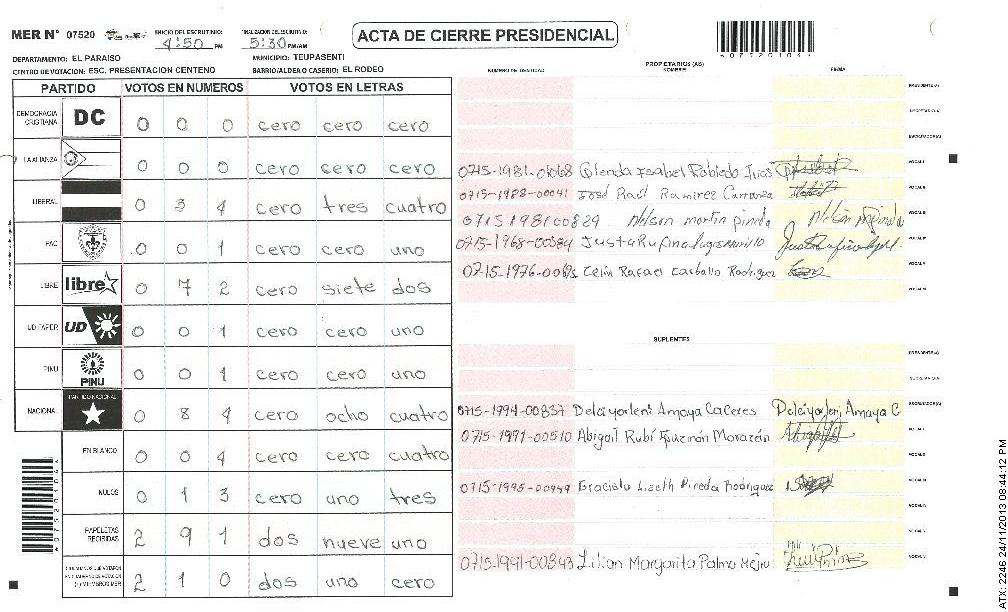 MER N° 07520
INICIO DEL ESCRUTINIO: 4:50 PM
FINALIZACION DEL ESCRUTINIO: 5:30 PM/AM
ACTA DE CIERRE PRESIDENCIAL
DEPARTAMENTO: EL PARAISO
MUNICIPIO: TEUPASENTI
CENTRO DE VOTACION: ESC. PRESENTACION CENTENO
BARRIO/ALDEA O CASERIO: EL RODEO
PARTIDO VOTOS EN NUMEROS VOTOS EN LETRAS
DEMOCRACIA CRISTIANA DC 0 0 0 cero cero cero
LA ALIANZA 0 0 0 cero cero cero
LIBERAL 0 3 4 cero tres cuatro
PAC 0 0 1 cero cero uno
LIBRE libre 0 7 2 cero siete dos
UD FAPER UD 0 0 1 cero cero uno
PINU PINU 0 0 1 cero cero uno
NACIONAL PARTIDO NACIONAL 0 8 4 cero ocho cuatro
EN BLANCO 0 0 4 cero cero cuatro
NULOS 0 1 3 cero uno tres
PAPELETAS RECIBIDAS 2 9 1 dos nueve uno
2 1 0 dos uno cero
NUMERO DE IDENTIDAD
PROPIETARIOS (AS)
NOMBRE
FIRMA
0715-1981-01068 Glenda Isabel
0715-1988-00041 José Raúl Ramirez Carranza
0715 1981 00829 Nelson martin pineda Nelson Pineda
0715-1968-00384 Justa Rufina
0715-1976-00695 Celin Rafael Carballo Rodriguez
SUPLENTES
0715-1994-00837 Delciyorleni Amaya Caceres Delciyorleni Amaya C
0715-1991-00510 Abigail Rubí Guzmán Morazán
0715-1995-00449 Graciela Lizeth Pineda Rodriguez
0715-1991-00843 Lilian Margarita Palma Mejia
ATX: 2246 24/11/2013 08:44:12 PM